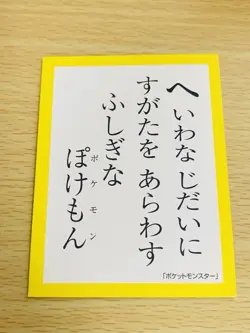 へいわな じだいに
すがたを あらわす
ふしぎな
ぽけもん
ポケモン
「ポケットモンスター」